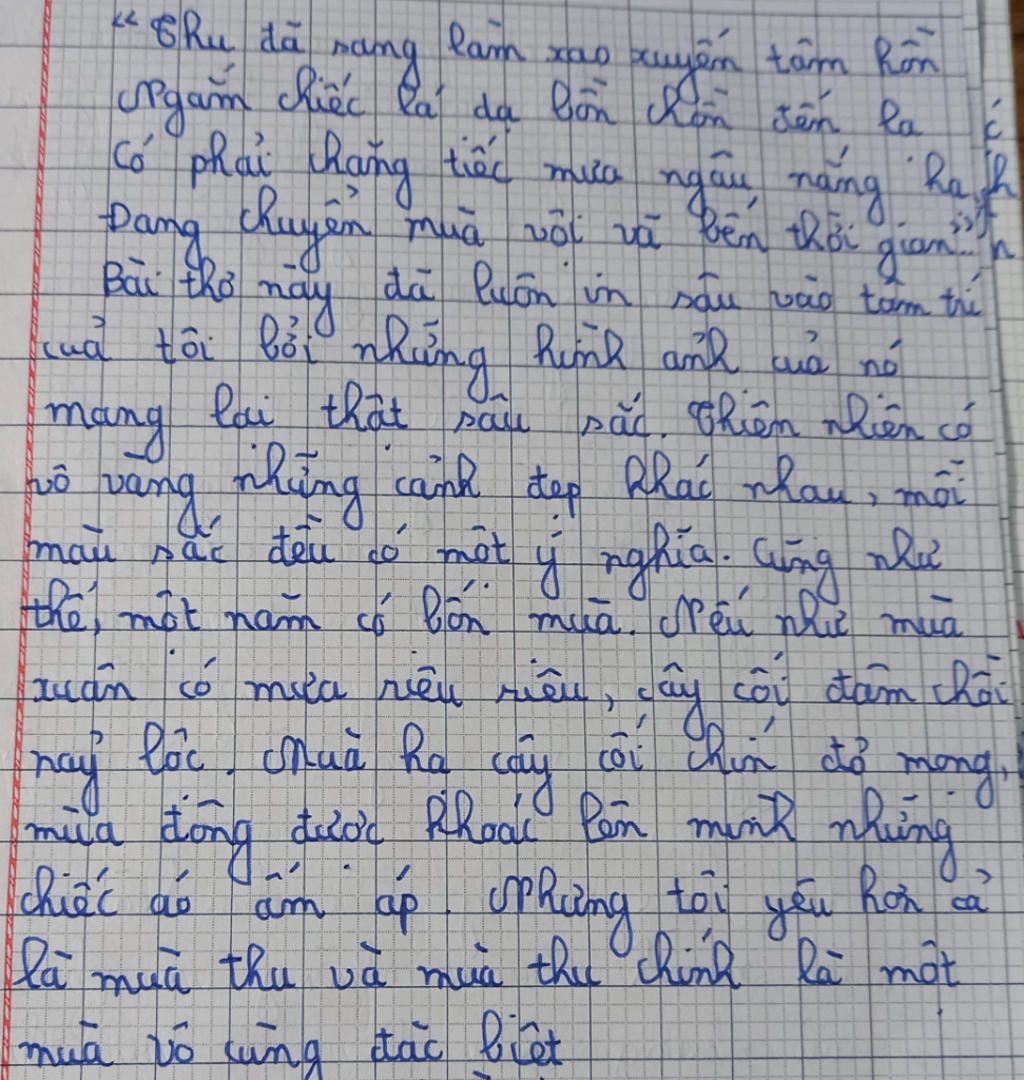 “Thu đã sang làm xao xuyến tâm hồn
Ngắm chiếc lá dạ bồn chồn đến lạ
Có phải chăng tiếc mưa ngâu nắng hạ
Đang chuyển mùa vội vã bến thời gian”..
Bài thơ này đã luôn in sâu vào tâm trí
của tôi bởi những hình ảnh của nó
mang lại thật sâu sắc. Thiên nhiên có
vô vàng những cảnh đẹp khác nhau, mỗi
màu sắc đều có một ý nghĩa. Cũng như
thế, một năm có bốn mùa. Nếu như mùa
xuân có mưa riêu riêu, cây cối đâm chồi
nảy lộc. Mùa hạ cây cối chín đỏ mọng,
mùa đông được khoác lên mình những
chiếc áo ấm áp. Nhưng tôi yêu hơn cả
là mùa thu và mùa thu chính là một
mùa vô cùng đặc biệt